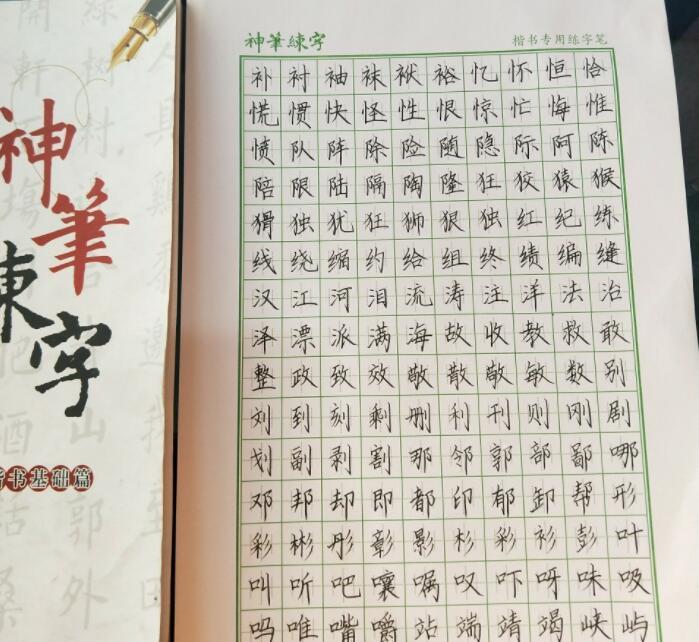 神筆練字
楷书基础篇
神筆練字 楷书专用练字笔
补衬袖袜袱裕忆怀恒恰
慌惯快怪性恨惊忙悔惟
愤队阵除险随隐际阿陈
陪限陆隔陶隆狂狡猿猴
猾独犹狂狮狠独红纪练
线绕缩约给组终绩编缝
汉江河泪流涛注洋法治
泽漂派满海故收教救敢
整政致效敬散敬敏数别
刘到刻剩删利刊则刚剧
划副剥割那邻郭部鄙哪
邓邦却即都印郁卸帮形
彩彬彤彰影杉彩衫彭叶
叫听吧嚷嘱叹吓呀味吸
吗唯嘴嚼站端靖竭峡屿